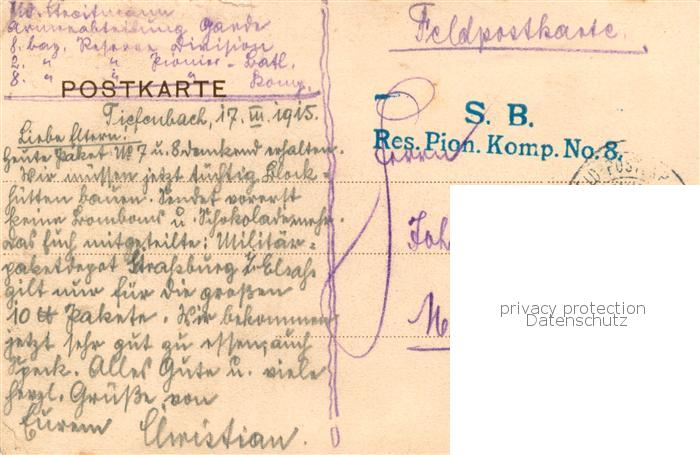 Armeeabteilung Gaede
8. bay. Reserve Division
2. " " Pionier-Batl.
8. " " " Komp.
Feldpostkarte.
POSTKARTE
S. B.
Res. Pion. Komp. No. 8.
Tiefenbach, 17. III. 1915.
Liebe Eltern!
Heute Paket No 7 u. 8 dankend erhalten.
Wir müssen jetzt tüchtig Block-
hütten bauen. Sendet vorerst
keine Bombons u. Schokolade mehr.
Das Euch mitgeteilte: Militär-
paketdepot Straßburg i. Elsaß
gilt nur für die großen
10 ℔ Pakete. Wir bekommen
jetzt sehr gut zu essen, auch
Speck. Alles Gute u. viele
herzl. Grüße von
Eurem Christian.
Herrn
Joh
privacy protection
Datenschutz